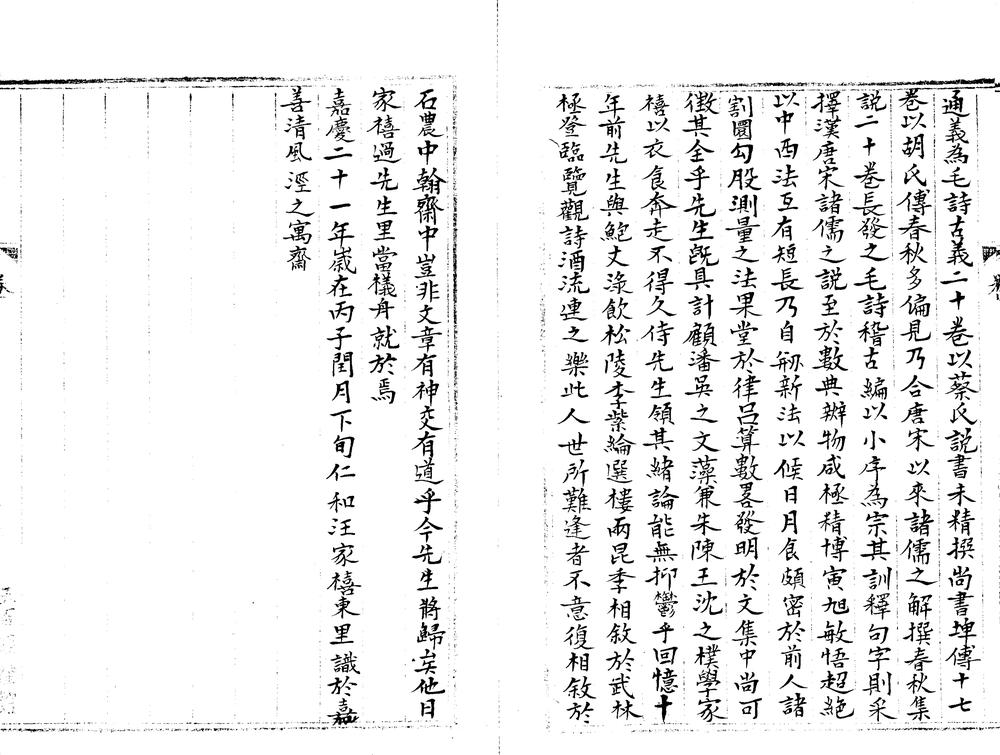 通義為毛詩古義二十卷以蔡氏說書未精撰尚書埤傳十七
卷以胡氏傳春秋多偏見乃合唐宋以來諸儒之解撰春秋集
說二十卷長發之毛詩稽古編以小序為宗其訓釋句字則采
擇漢唐宋諸儒之說至於數典辦物咸極精博寅旭敏悟超絕
以中西法互有短長乃自刱新法以候日月食頗密於前人諸
割圜勾股測量之法果堂於律呂算數畧發明於文集中尚可
徵其全乎先生既具計顧潘吳之文藻兼朱陳王沈之樸學家
禧以衣食奔走不得久侍先生領其緒論能無抑鬱乎回憶十
年前先生與鮑丈淥飲松陵李紫綸選樓兩昆季相敘於武林
極登臨覽觀詩酒流連之樂此人世所難逢者不意復相敘於
石農中翰齋中豈非文章有神交有道乎今先生將歸矣他日
家禧過先生里當檥舟就於焉
嘉慶二十一年嵗在丙子閏月下旬仁和汪家禧東里識於嘉
善清風涇之寓齋